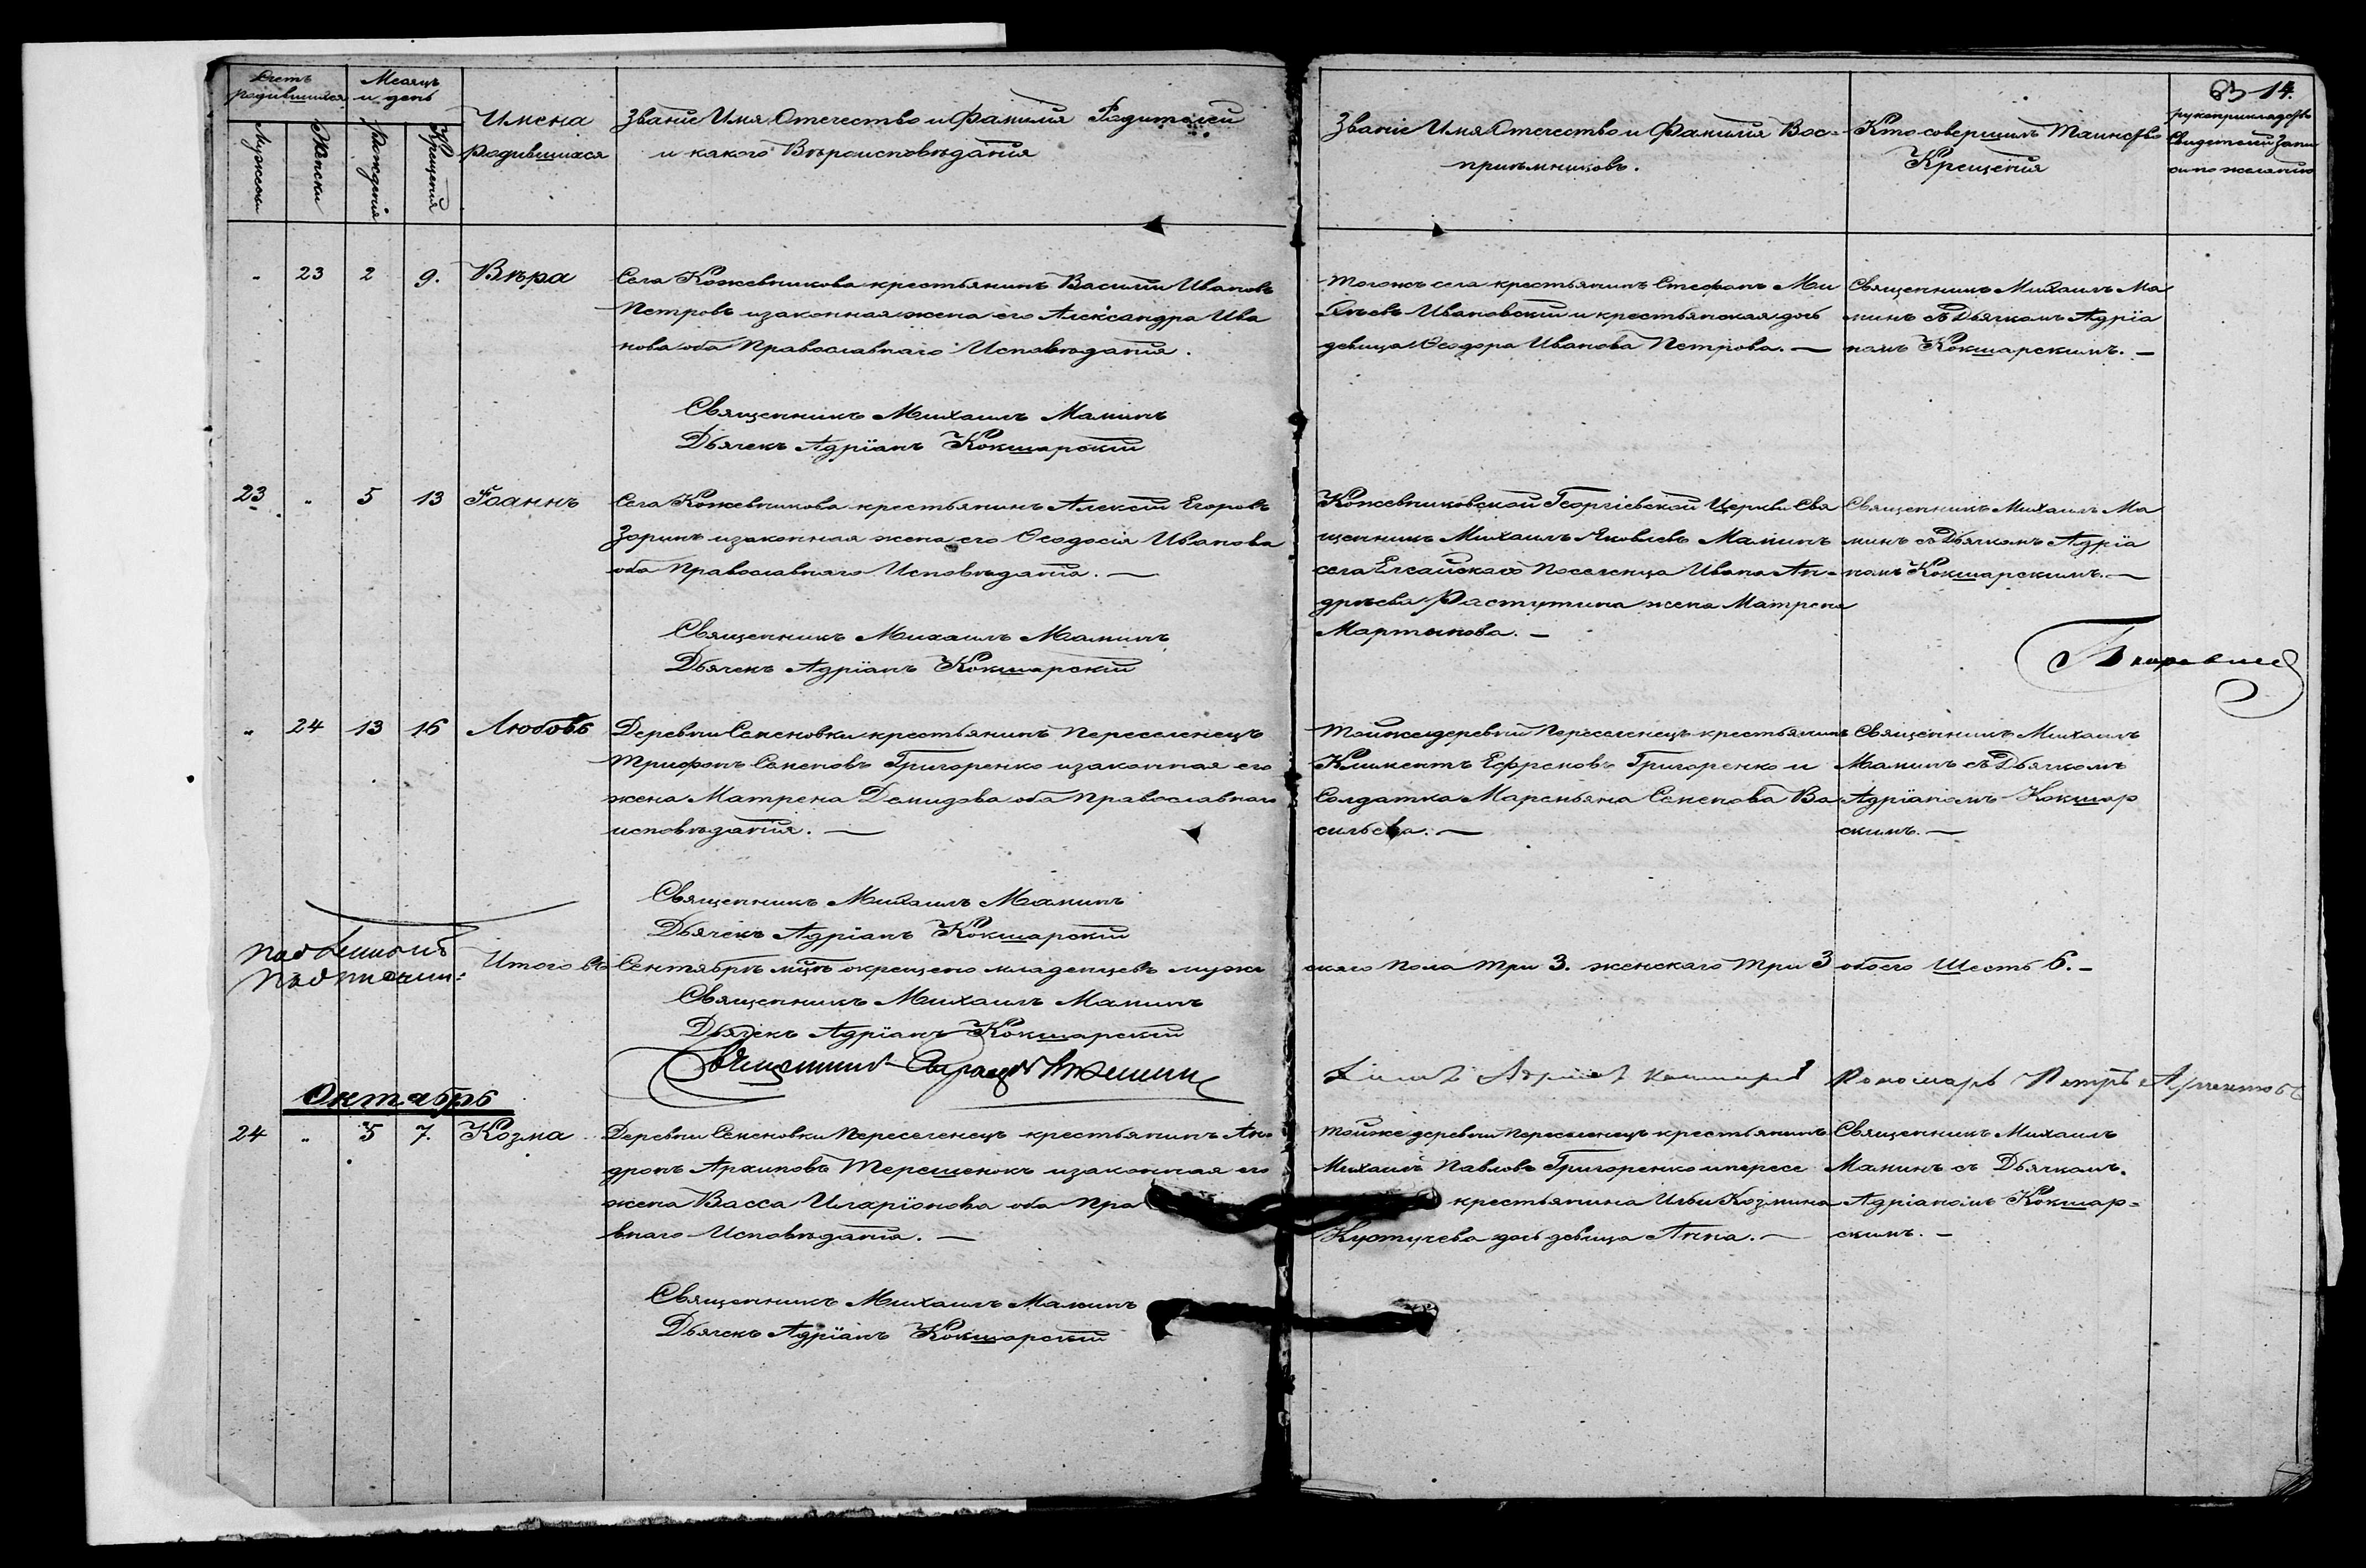 63 14.
Счетъ родившихся
Месяцъ и день
Мужески
Женски
Рожденія
Крещенія
Имена
родившихся
Званіе Имя Отечество и Фамилія Родителей
и какого Вѣроисповѣданія
Званіе Имя Отечество и Фамилія Вос-
пріемниковъ.
Кто совершилъ Таинство
Крещенія
рукоприкладство
Свидетелей запи
си по желанію
" 23 2 9. Вѣра
Села Кожевникова крестьянинъ Василій Ивановъ
Петровъ изаконная жена его Александра Ива
нова оба Православнаго Исповѣданія.
Священникъ Михаилъ Маминъ
Дьячекъ Адріанъ Кокшарскій
тогожъ села крестьянинъ Стефанъ Ми
хѣевъ Ивановскій и крестьянская дочь
девица Ѳеодора Иванова Петрова. —
Священникъ Михаилъ Ма
минъ съ Дьячкомъ Адріа
номъ Кокшарскимъ. —
23 " 5 13 Іоаннъ
Села Кожевникова крестьянинъ Алексій Егоровъ
Зоринъ изаконная жена его Ѳеодосія Иванова
оба Православнаго Исповѣданія. —
Священникъ Михаилъ Маминъ
Дьячекъ Адріанъ Кокшарскій
Кожевниковской Георгіевской Церкви Свя
щенникъ Михаилъ Яковлевъ Маминъ
села Елгайскаго Поселенца Ивана Ан-
дрѣева Растутина жена Матрена
Мартынова. —
Священникъ Михаилъ Ма
минъ съ Дьячкомъ Адріа
номъ Кокшарскимъ. —
" 24 13 16 Любовь
Деревни Семеновки крестьянинъ Переселенецъ
Трифонъ Семеновъ Григоренко изаконная его
жена Матрена Демидова оба Православнаго
исповѣданія. —
Священникъ Михаилъ Маминъ
Дьячекъ Адріанъ Кокшарскій
тойже деревни Переселенецъ крестьянинъ
Климентъ Ефремовъ Григоренко и
Солдатка Маремьяна Семенова Ва
сильева. —
Священникъ Михаилъ
Маминъ съ Дьячкомъ
Адріаномъ Кокшар
скимъ. —
Итого въ Сентябрѣ мцѣ окрещено младенцевъ муже
скаго Пола три 3. женскаго три 3 обоего Шесть 6. —
Священникъ Михаилъ Маминъ
Дьячекъ Адріанъ Кокшарскій
Пономарь Петръ
Октябрь
24 " 5 7. Козма
Деревни Семеновки Переселенецъ крестьянинъ Ан-
дронъ Архиповъ Терещенокъ изаконная его
жена Васса Иларіонова оба Пра
внаго Исповѣданія. —
Священникъ Михаилъ Маминъ
Дьячекъ Адріанъ Кокшарскій
тойже деревни Переселенецъ крестьянинъ
Михаилъ Павловъ Григоренко ипересе
крестьянина Ильи Козмина
дочь девица Анна. —
Священникъ Михаилъ
Маминъ съ Дьячкомъ.
Адріаномъ Кокшар-
скимъ. —